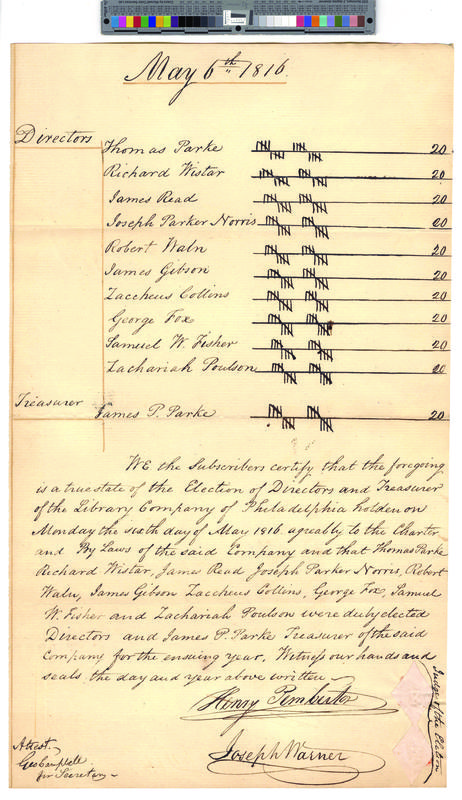 May 6th 1816.
Directors
Thomas Parke 20
Richard Wistar 20
James Read 20
Joseph Parker Norris 20
Robert Waln 20
James Gibson 20
Zaccheus Collins 20
George Fox 20
Samuel W. Fisher 20
Zachariah Poulson 20
Treasurer James P. Parke 20
WE the Subscribers certify that the foregoing
is a true state of the Election of Directors and Treasurer
of the Library Company of Philadelphia holden on
Monday the sixth day of May 1816 agreably to the Charter
and By Laws of the said Company and that Thomas Parke
Richard Wistar, James Read Joseph Parker Norris, Robert
Waln, James Gibson Zaccheus Collins, George Fox, Samuel
W. Fisher and Zachariah Poulson were duly elected
Directors and James P. Parke Treasurer of the said
Company for the ensuing year. Witness our hands and
seals the day and year above written
Henry Pemberton
Joseph Warner
Judges of the Election
Attest.
Geo Campbell
for Secretary